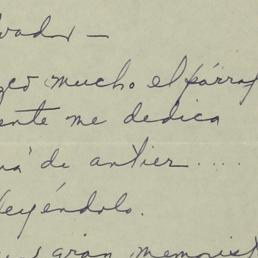 vador —
zco mucho el párraf
ente me dedica
ná de antier.....
leyéndolo.
gran memorist